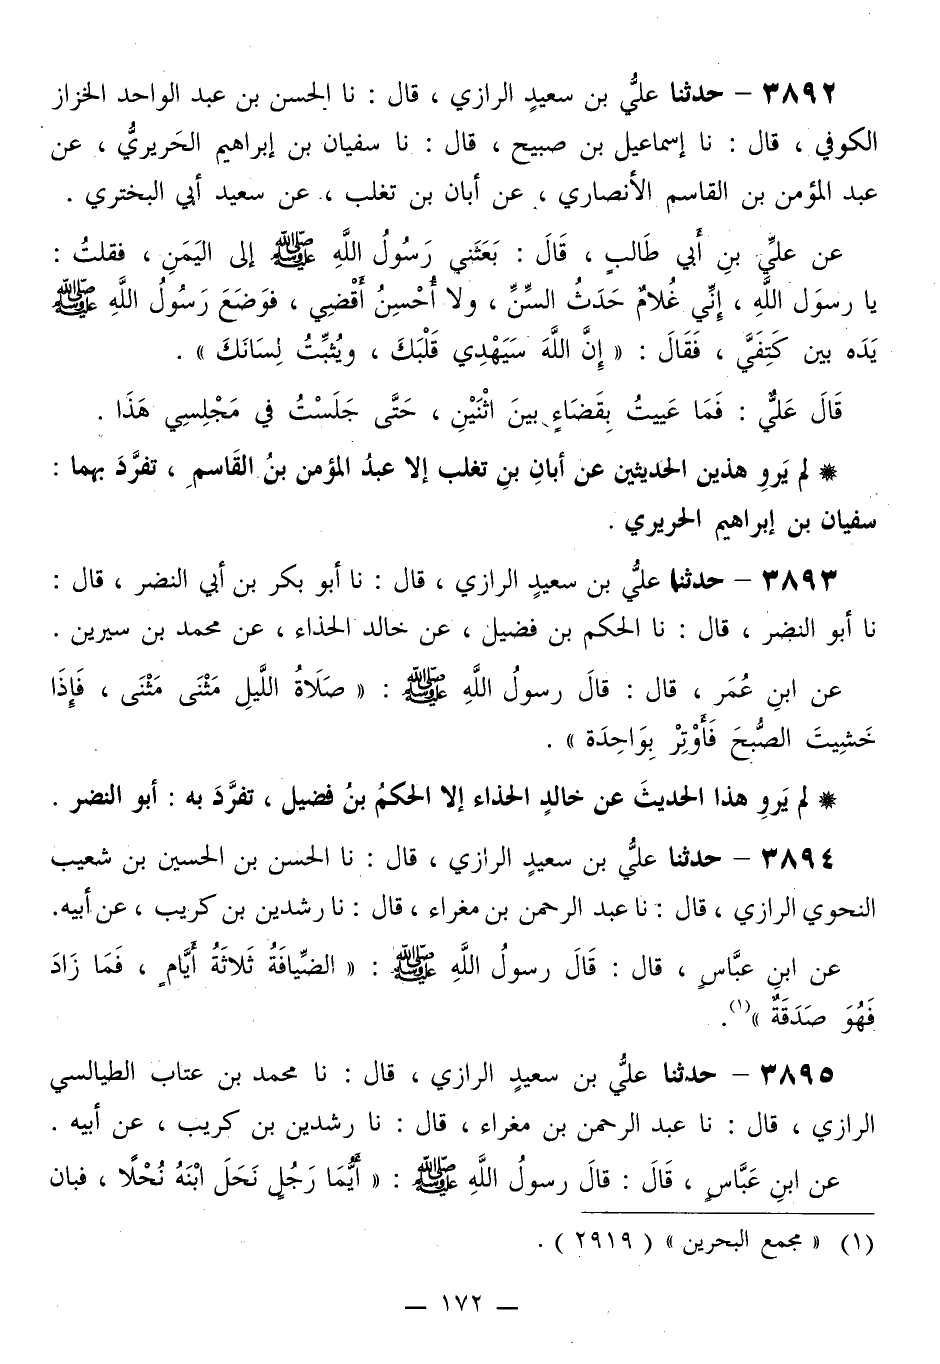 ٣٨٩٢ – حدثنا عليُّ بن سعيدٍ الرازي ، قال : نا الحسن بن عبد الواحد الخزاز
الكوفي ، قال : نا إسماعيل بن صبيح ، قال : نا سفيان بن إبراهيم الحَريريُّ ، عن
عبد المؤمن بن القاسم الأنصاري ، عن أبان بن تغلب ، عن سعيد أبي البختري .
عن عليِّ بنِ أَبي طَالبٍ ، قَالَ : بَعَثَني رَسُولُ اللَّهِ ﷺ إلى اليَمَنِ ، فقلتُ :
يا رسولَ اللَّهِ ، إنِّي غُلامٌ حَدَثُ السِّنِّ ، ولا أُحْسِنُ أَقْضِي ، فوَضَعَ رَسُولُ اللَّهِ ﷺ
يَدَه بين كَتِفَيَّ ، فَقَالَ : « إِنَّ اللَّهَ سَيَهْدِي قَلْبَكَ ، ويُثَبِّتُ لِسَانَكَ » .
قَالَ عَليٌّ : فَمَا عَيِيتُ بِقَضَاءٍ بينَ اثْنَيْنِ ، حَتَّى جَلَسْتُ في مَجْلِسِي هَذَا .
* لم يَروِ هذين الحديثين عن أبانِ بنِ تغلب إلا عبدُ المؤمن بنُ القَاسمِ ، تفرَّدَ بهما :
سفيان بن إبراهيم الحريري .
٣٨٩٣ – حدثنا عليُّ بن سعيدٍ الرازي ، قال : نا أبو بكر بن أبي النضر ، قال :
نا أبو النضر ، قال : نا الحكم بن فضيل ، عن خالد الحذاء ، عن محمد بن سيرين .
عن ابنِ عُمَر ، قال : قالَ رسولُ اللَّهِ ﷺ : « صَلَاةُ اللَّيلِ مَثْنَى مَثْنَى ، فَإِذَا
خَشِيتَ الصُّبحَ فَأَوْتِرْ بِوَاحِدَة » .
* لم يَروِ هذا الحديثَ عن خالدٍ الحذاء إلا الحكمُ بنُ فضيل ، تفرَّدَ به : أبو النضر .
٣٨٩٤ – حدثنا عليُّ بن سعيدٍ الرازي ، قال : نا الحسن بن الحسين بن شعيب
النحوي الرازي ، قال : نا عبد الرحمن بن مغراء ، قال : نا رشدين بن كريب ، عن أبيه.
عن ابنِ عبَّاسٍ ، قال : قَالَ رسولُ اللَّهِ ﷺ : « الضِّيافَةُ ثَلاثَةُ أَيَّامٍ ، فَمَا زَادَ
فَهُوَ صَدَقَةٌ »(١).
٣٨٩٥ – حدثنا عليُّ بن سعيدٍ الرازي ، قال : نا محمد بن عتاب الطيالسي
الرازي ، قال : نا عبد الرحمن بن مغراء ، قال : نا رشدين بن كريب ، عن أبيه .
عن ابنِ عَبَّاسٍ ، قَالَ : قالَ رسولُ اللَّهِ ﷺ : « أَيُّمَا رَجُلٍ نَحَلَ ابْنَهُ نُحْلًا ، فبان
(١) « مجمع البحرين » ( ٢٩١٩ ) .
– ١٧٢ –